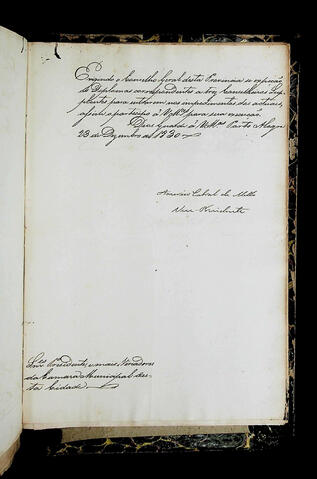 Exigindo o Conselho Geral desta Provincia se expeção
os Diplomas correspondente a tres Conselheiros Sup-
plentes para entrarem nos impedimentos dos actuaes,
assim o participo a V.Mces para sua execução.
Deus Guarde a V.Mces Porto Alegre
23 de Dezembro de 1830
Americo Cabral de Mello
Vice-Presidente
Snres Presidente, e mais Vereadores
da Camara Municipal des-
ta Cidade